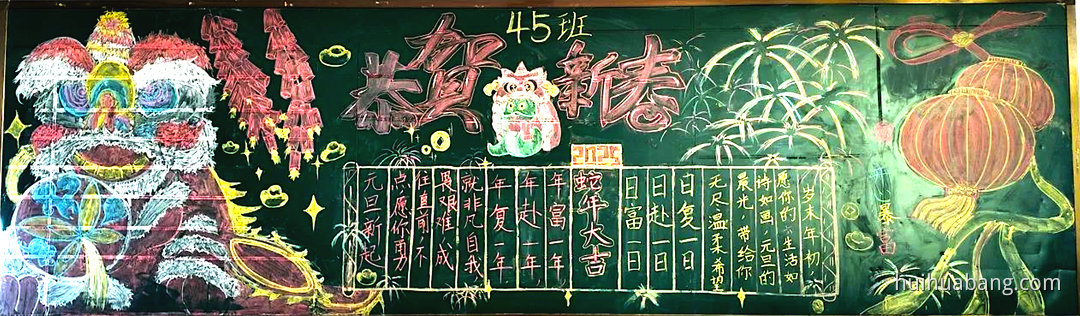 45班
恭贺新春
2025
岁末年初,
愿你的生活如
诗如画,元旦的
晨光,带给你
无尽温柔希望
日复一日
日赴一日
日富一日
蛇年大吉
年富一年
年赴一年,
年复一年,
就非凡自我
畏艰难,成
往直前,不
点愿你勇
元旦新起
huihuabang.com